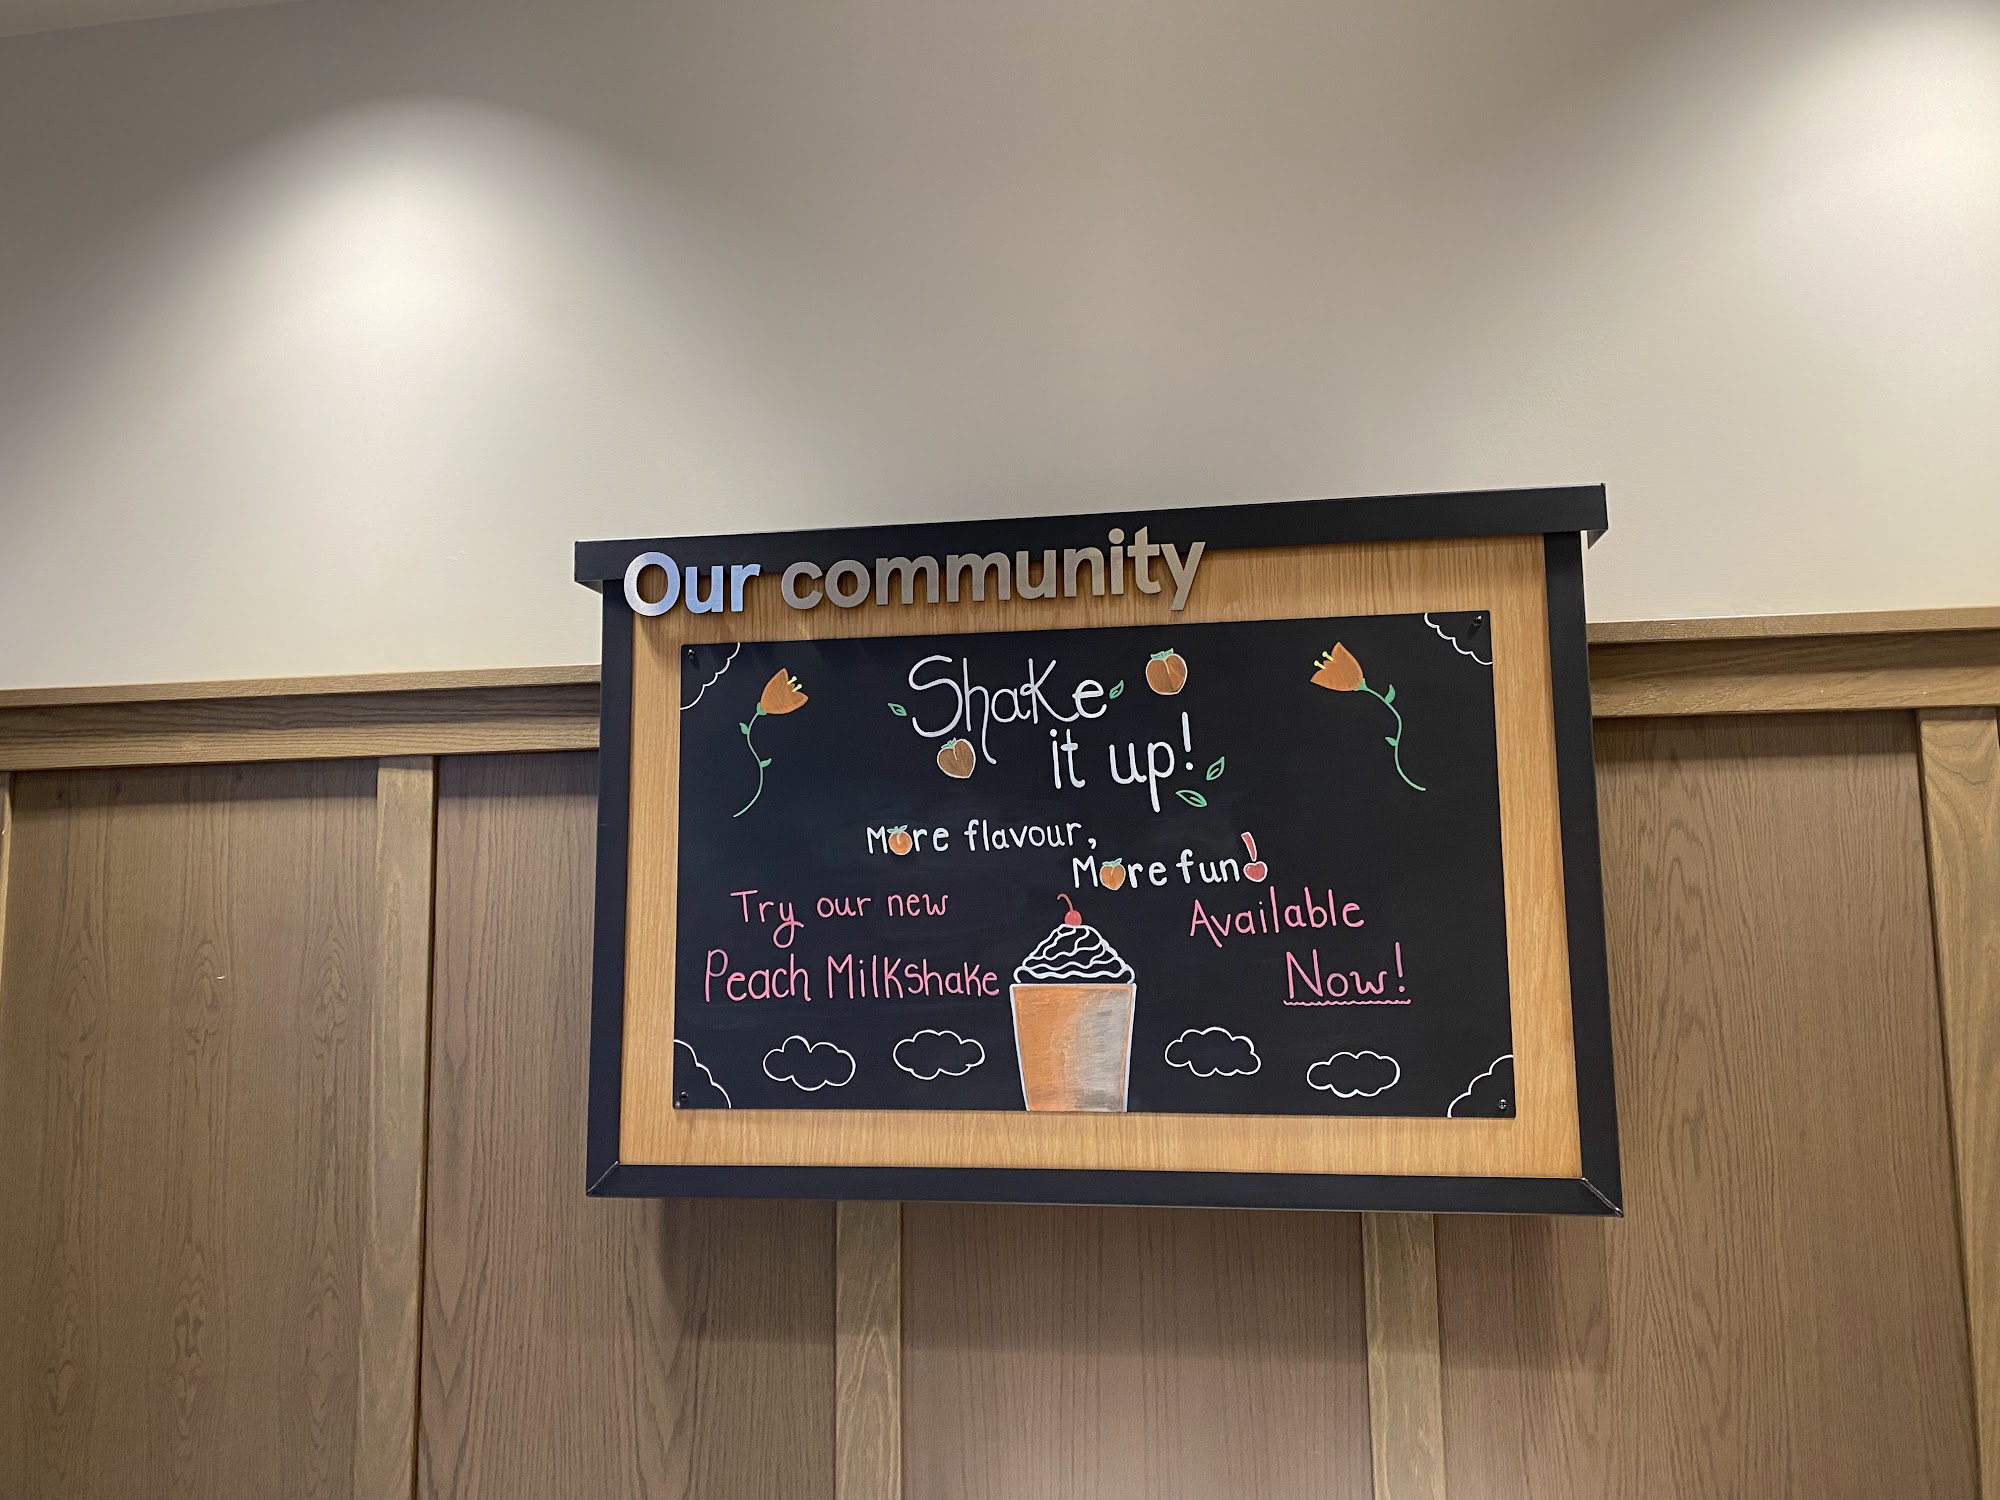 Our community
Shake
it up!
More flavour,
More fun!
Try our new
Peach Milkshake
Available
Now!